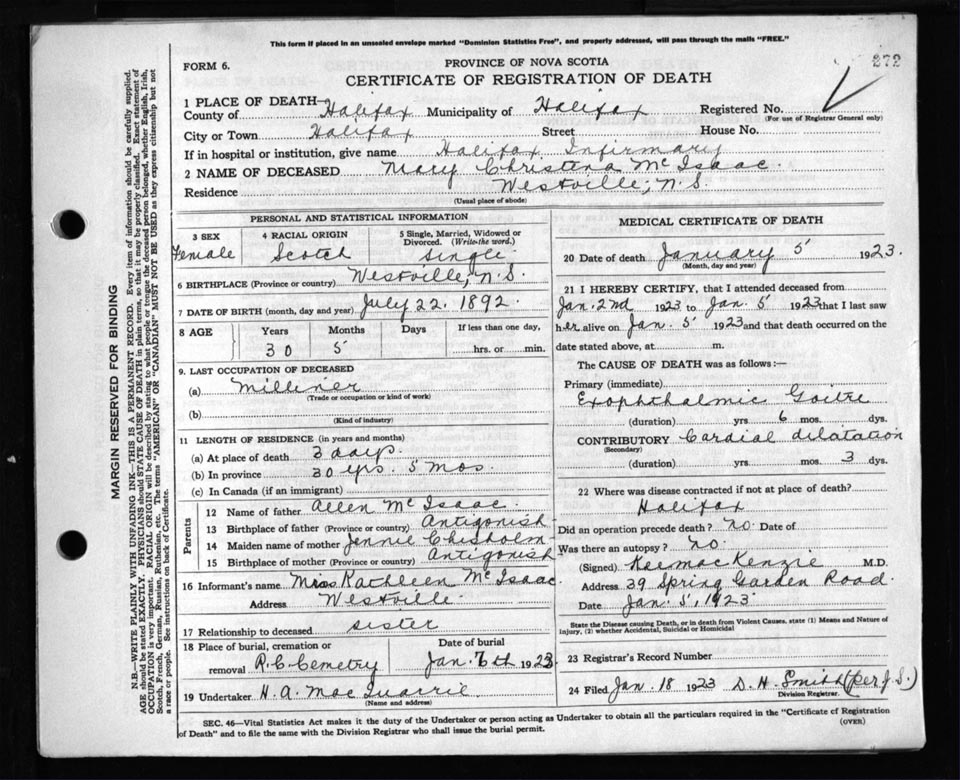 This form if placed in an unsealed envelope marked "Dominion Statistics Free", and properly addressed, will pass through the mails "FREE."
272
FORM 6.
PROVINCE OF NOVA SCOTIA
CERTIFICATE OF REGISTRATION OF DEATH
1 PLACE OF DEATH—
County of Halifax Municipality of Halifax Registered No.
(For use of Registrar General only)
City or Town Halifax Street House No.
If in hospital or institution, give name Halifax Infirmary
2 NAME OF DECEASED Mary Christena McIsaac.
Residence Westville, N.S.
(Usual place of abode)
PERSONAL AND STATISTICAL INFORMATION
3 SEX 4 RACIAL ORIGIN 5 Single, Married, Widowed or Divorced. (Write the word.)
Female Scotch single
6 BIRTHPLACE (Province or country) Westville, N.S.
7 DATE OF BIRTH (month, day and year) July 22. 1892.
8 AGE Years Months Days If less than one day,
30 5 hrs. or min.
9. LAST OCCUPATION OF DECEASED
(a) Milliner
(Trade or occupation or kind of work)
(b)
(Kind of industry)
11 LENGTH OF RESIDENCE (in years and months)
(a) At place of death 3 days.
(b) In province 30 yrs. 5 mos.
(c) In Canada (if an immigrant)
Parents
12 Name of father Allen McIsaac.
13 Birthplace of father (Province or country) Antigonish
14 Maiden name of mother Jennie Chisholm
15 Birthplace of mother (Province or country) Antigonish
16 Informant's name Miss Kathleen McIsaac
Address Westville.
17 Relationship to deceased sister
18 Place of burial, cremation or Date of burial
removal R.C. Cemetry Jan. 7th 1923
19 Undertaker H. A. MacQuarrie
(Name and address)
MEDICAL CERTIFICATE OF DEATH
20 Date of death January 5 1923.
(Month, day and year)
21 I HEREBY CERTIFY, that I attended deceased from
Jan. 2nd 1923 to Jan. 5 1923 that I last saw
her alive on Jan. 5 1923 and that death occurred on the
date stated above, at m.
The CAUSE OF DEATH was as follows:—
Primary (immediate)
Exophthalmic Goitre
(duration) yrs 6 mos. dys.
CONTRIBUTORY Cardial dilatation
(Secondary)
(duration) yrs. mos. 3 dys.
22 Where was disease contracted if not at place of death?
Halifax
Did an operation precede death? no. Date of
Was there an autopsy? no.
(Signed) MacKenzie M.D.
Address 39 Spring Garden Road.
Date Jan. 5, 1923.
State the Disease causing Death, or in death from Violent Causes, state (1) Means and Nature of
Injury, (2) whether Accidental, Suicidal or Homicidal
23 Registrar's Record Number
24 Filed Jan. 18 1923 D. H. Smith (per J.S.)
Division Registrar.
SEC. 46—Vital Statistics Act makes it the duty of the Undertaker or person acting as Undertaker to obtain all the particulars required in the "Certificate of Registration
of Death" and to file the same with the Division Registrar who shall issue the burial permit.
(OVER)
MARGIN RESERVED FOR BINDING
N.B.—WRITE PLAINLY WITH UNFADING INK—THIS IS A PERMANENT RECORD. Every item of information should be carefully supplied.
AGE should be stated EXACTLY. PHYSICIANS should STATE CAUSE OF DEATH in plain terms, so that it may be properly classified. Exact statement of
OCCUPATION is very important. RACIAL ORIGIN will be described by stating to what people or tongue the deceased person belonged, whether English, Irish,
Scotch, French, German, Russian, Ruthenian, etc. The terms "AMERICAN" OR "CANADIAN" MUST NOT BE USED as they express citizenship but not
a race or people. See instructions on back of Certificate.